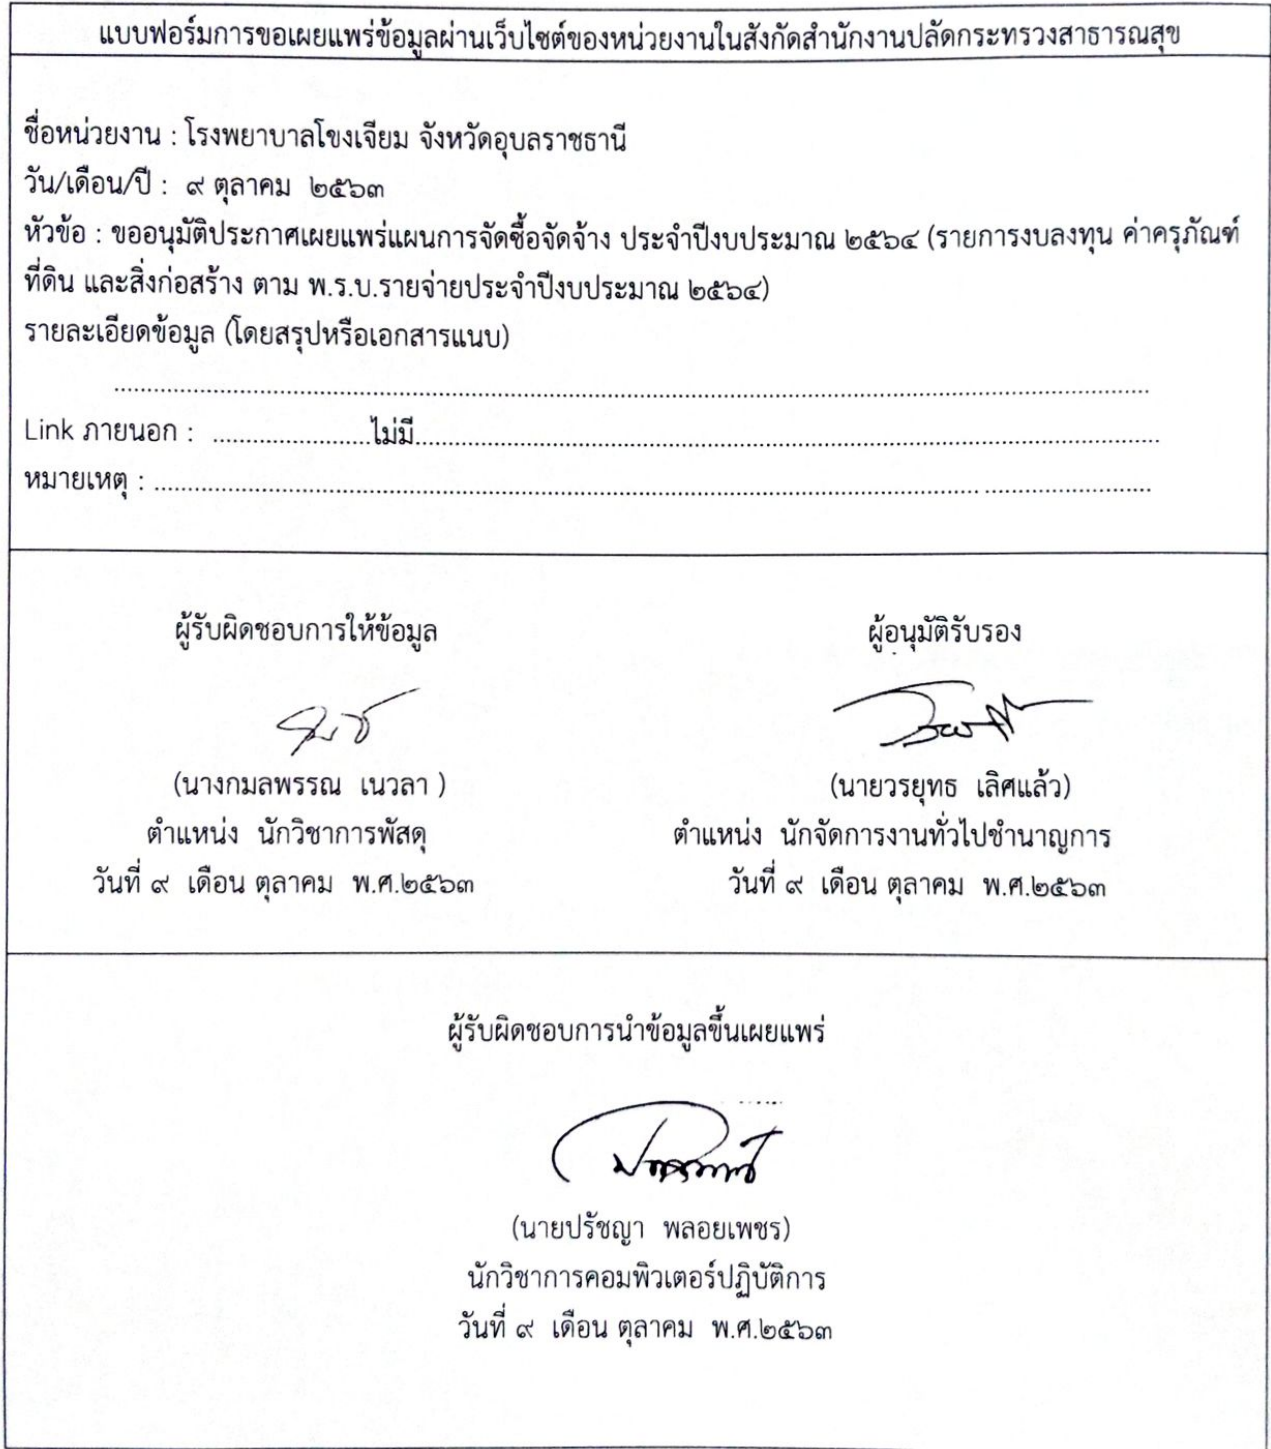 แบบฟอร์มการขอเผยแพร่ข้อมูลผ่านเว็บไซต์ของหน่วยงานในสังกัดสำนักงานปลัดกระทรวงสาธารณสุข
ชื่อหน่วยงาน : โรงพยาบาลโขงเจียม จังหวัดอุบลราชธานี
วัน/เดือน/ปี : ๙ ตุลาคม ๒๕๖๓
หัวข้อ : ขออนุมัติประกาศเผยแพร่แผนการจัดซื้อจัดจ้าง ประจำปีงบประมาณ ๒๕๖๔ (รายการงบลงทุน ค่าครุภัณฑ์
ที่ดิน และสิ่งก่อสร้าง ตาม พ.ร.บ.รายจ่ายประจำปีงบประมาณ ๒๕๖๔)
รายละเอียดข้อมูล (โดยสรุปหรือเอกสารแนบ)
Link ภายนอก : ........................ไม่มี........................
หมายเหตุ : ........................
ผู้รับผิดชอบการให้ข้อมูล
ผู้อนุมัติรับรอง
(นางกมลพรรณ เนวลา )
(นายวรยุทธ เลิศแล้ว)
ตำแหน่ง นักวิชาการพัสดุ
ตำแหน่ง นักจัดการงานทั่วไปชำนาญการ
วันที่ ๙ เดือน ตุลาคม พ.ศ.๒๕๖๓
วันที่ ๙ เดือน ตุลาคม พ.ศ.๒๕๖๓
ผู้รับผิดชอบการนำข้อมูลขึ้นเผยแพร่
(นายปรัชญา พลอยเพชร)
นักวิชาการคอมพิวเตอร์ปฏิบัติการ
วันที่ ๙ เดือน ตุลาคม พ.ศ.๒๕๖๓